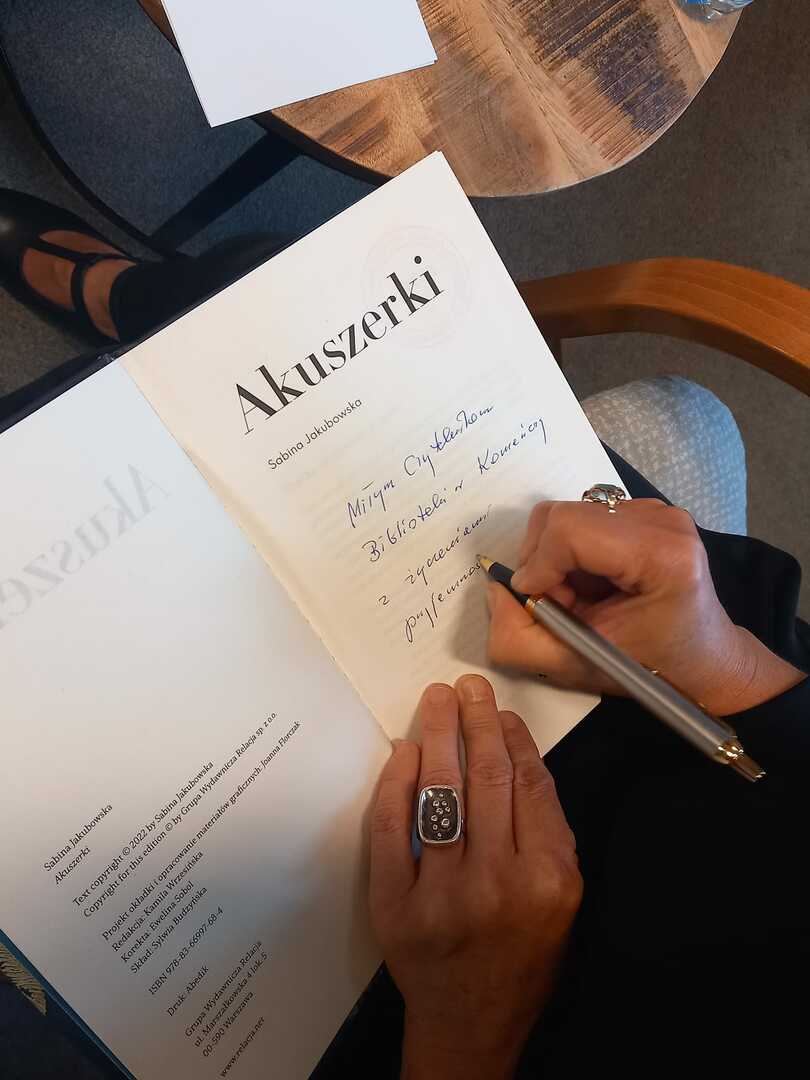 Akuszerki
Sabina Jakubowska
Miłym Czytelnikom
Biblioteki w Komeńcej
z życzeniami
przyjemnoś
Sabina Jakubowska
Akuszerki
Text copyright © 2022 by Sabina Jakubowska
Copyright for this edition © by Grupa Wydawnicza Relacja sp. z o.o.
Projekt okładki i opracowanie materiałów graficznych: Joanna Florczak
Redakcja: Kamila Wrzesińska
Korekta: Ewelina Sobol
Skład: Sylwia Budzyńska
ISBN 978-83-66997-68-4
Druk: Abedik
Grupa Wydawnicza Relacja
ul. Marszałkowska 4 lok.5
00-590 Warszawa
www.relacja.net